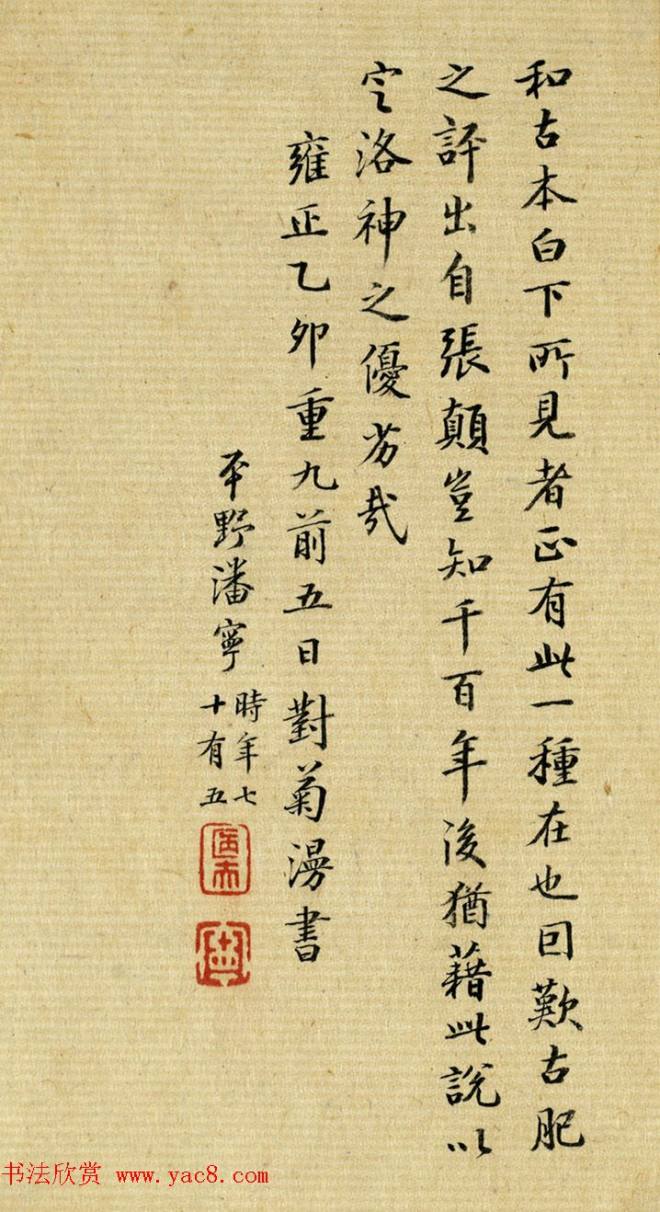 和古本白下所見者正有此一種在也因歎古肥
之評出自張顛豈知千百年後猶藉此說以
定洛神之優劣哉
雍正乙卯重九前五日對菊漫書
平野潘寧
時年七
十有五
书法欣赏 www.yac8.com